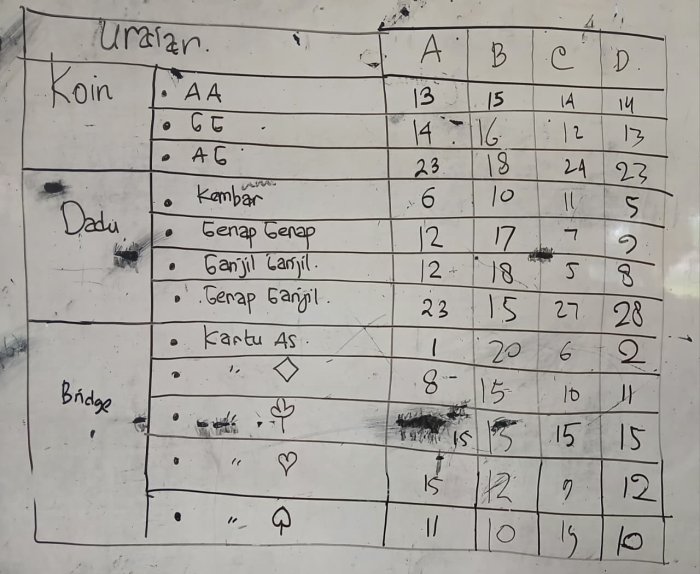 Uraian. A B C D
Koin • AA 13 15 14 14
• GG 14 16 12 13
• AG 23 18 24 23
Dadu • Kembar 6 10 11 5
• Genap Genap 12 17 7 9
• Ganjil Ganjil. 12 18 5 8
• Genap Ganjil. 23 15 27 28
Bridge • Kartu As. 1 20 6 2
• " ♢ 8 15 10 11
• " ♧ 15 15 15
• " ♡ 15 12 9 12
• " ♤ 11 10 10